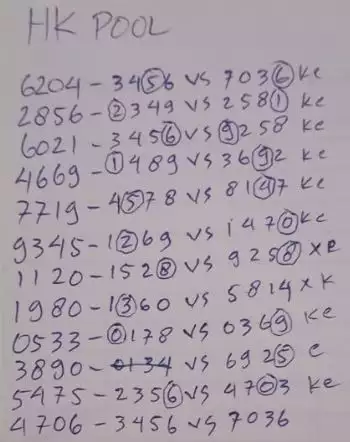 HK POOL
6204 - 3456 vs 7036 ke
2856 - 2349 vs 2581 ke
6021 - 3456 vs 9258 ke
4669 - 1489 vs 3692 ke
7719 - 4578 vs 8147 ke
9345 - 1269 vs 1470 ke
1120 - 1528 vs 9258 xe
1980 - 1360 vs 5814 x k
0533 - 0178 vs 0369 ke
3890 - 0134 vs 6925 e
5475 - 2356 vs 4703 ke
4706 - 3456 vs 7036